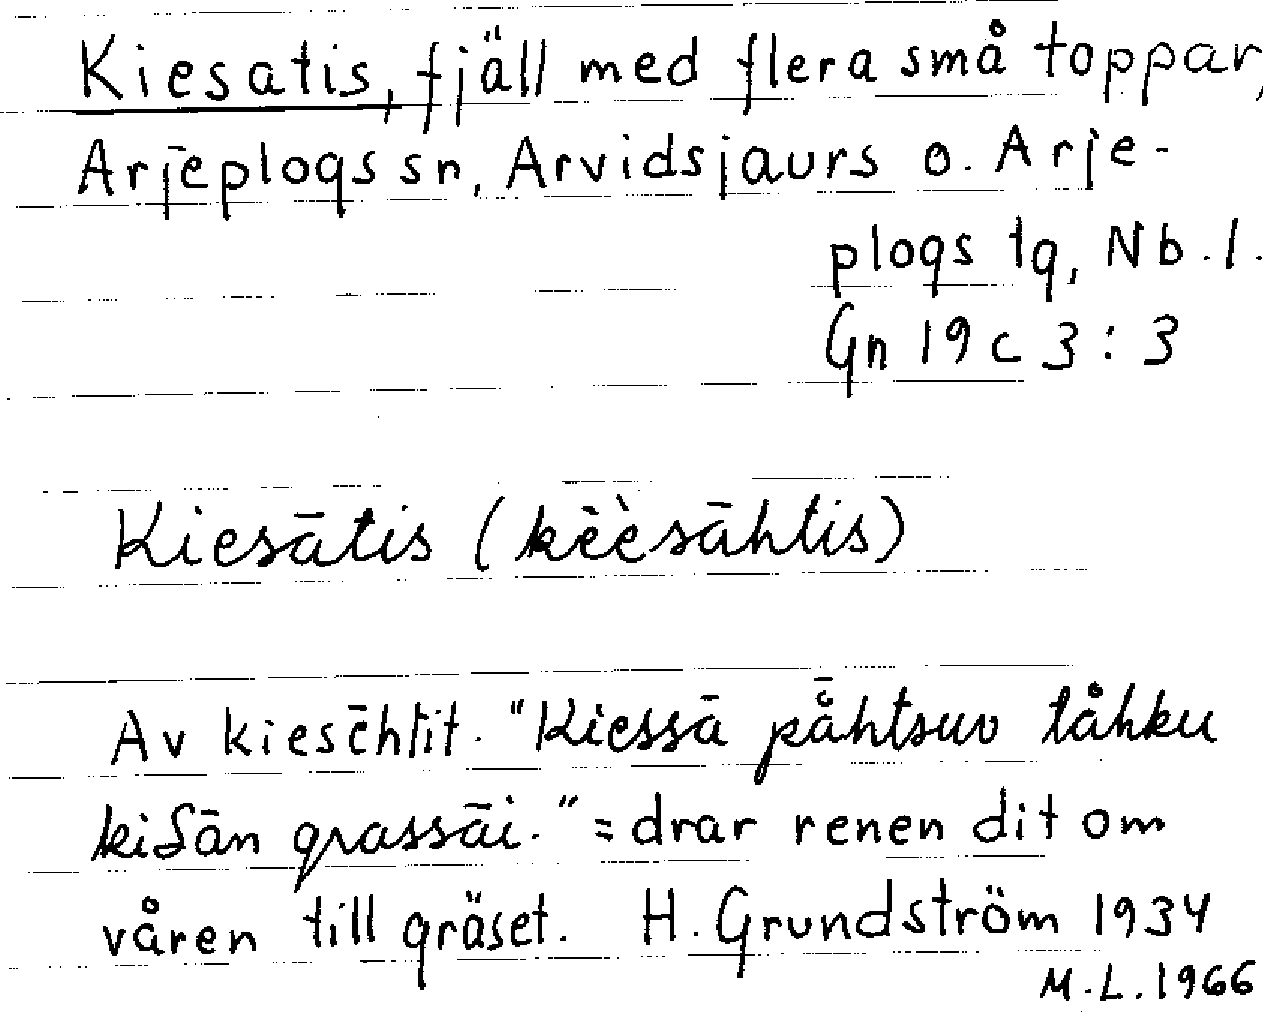 Kiesatis, fjäll med flera små toppar,
Arjeplogs sn, Arvidsjaurs o. Arje-
plogs tg, Nb. l.
Gn 19 c 3 : 3
Kiesātis (kèèsāhtis)
Av kiesēhtit. "Kiessā påhtsuv tåhku
kiđān grassāi." = drar renen dit om
våren till gräset. H. Grundström 1934
M.L. 1966